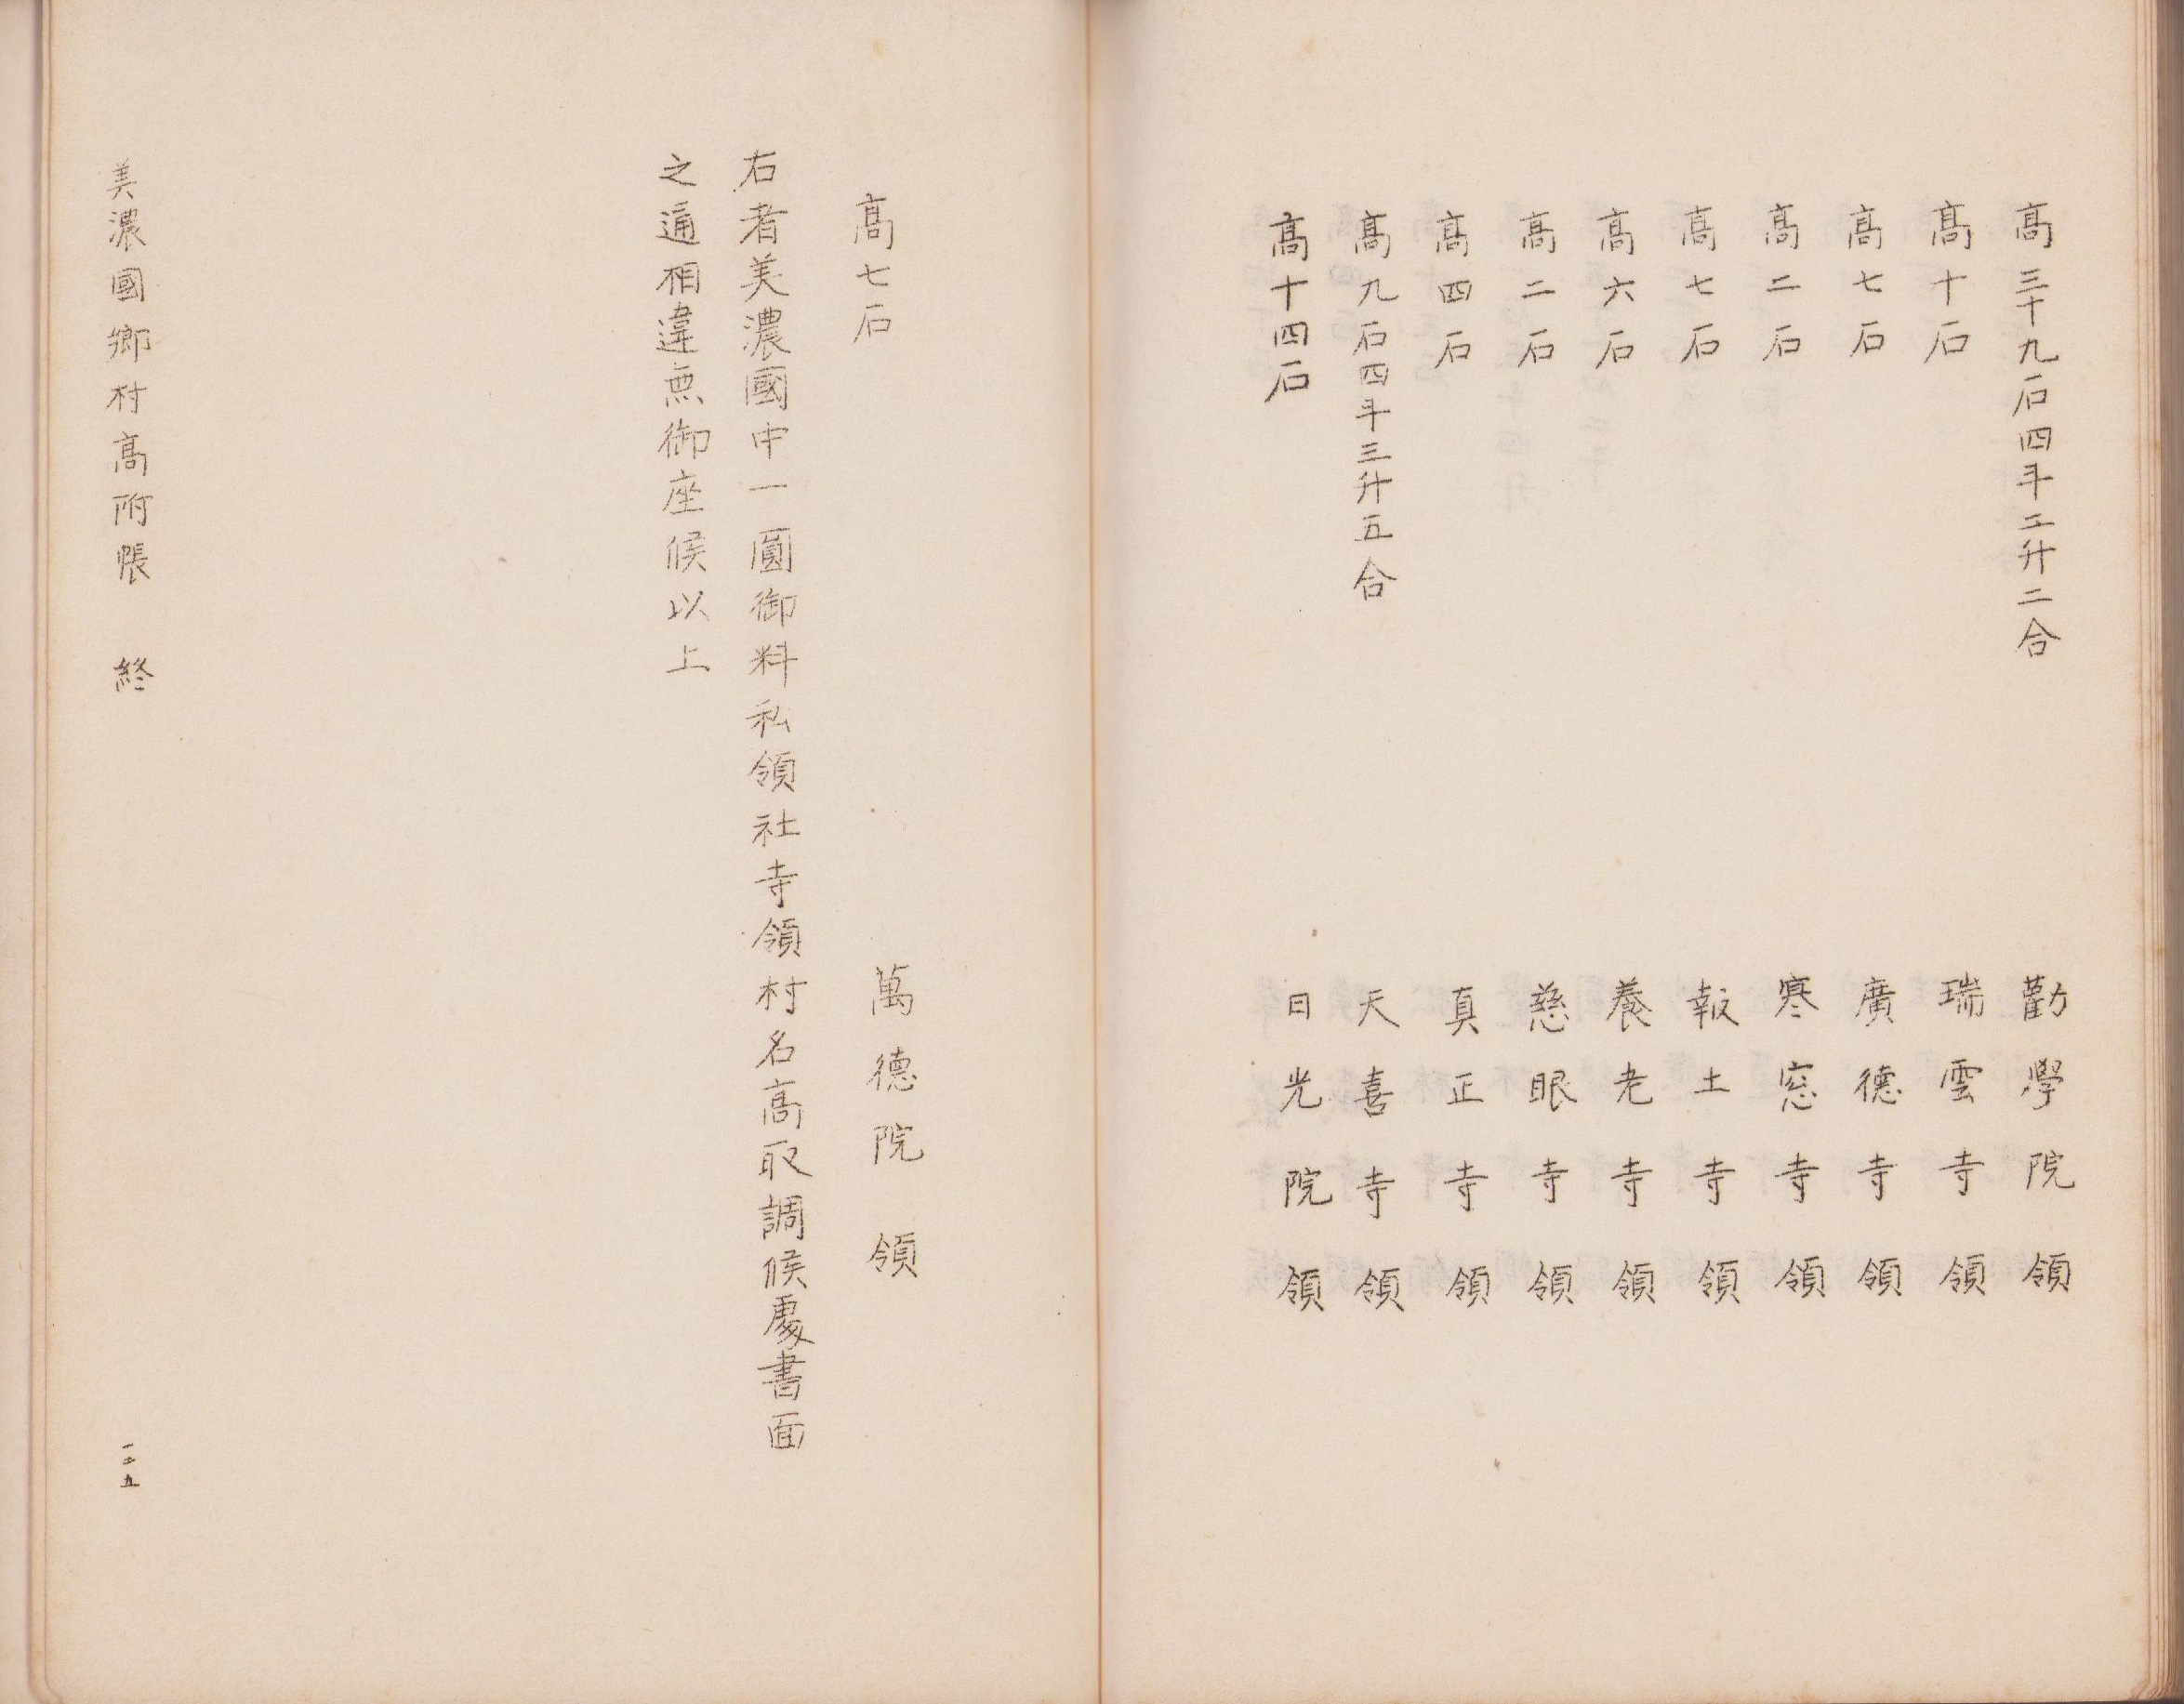 高三十九石四斗二升二合　勸學院領
高十石　瑞雲寺領
高七石　廣德寺領
高二石　寒窓寺領
高七石　報土寺領
高六石　養老寺領
高二石　慈眼寺領
高四石　真正寺領
高九石四斗三升五合　天喜寺領
高十四石　日光院領
高七石　萬德院領
右者美濃國中一圓御料私領社寺領村名高取調候處書面
之通相違無御座候以上
美濃國鄉村高附帳　終
一二五